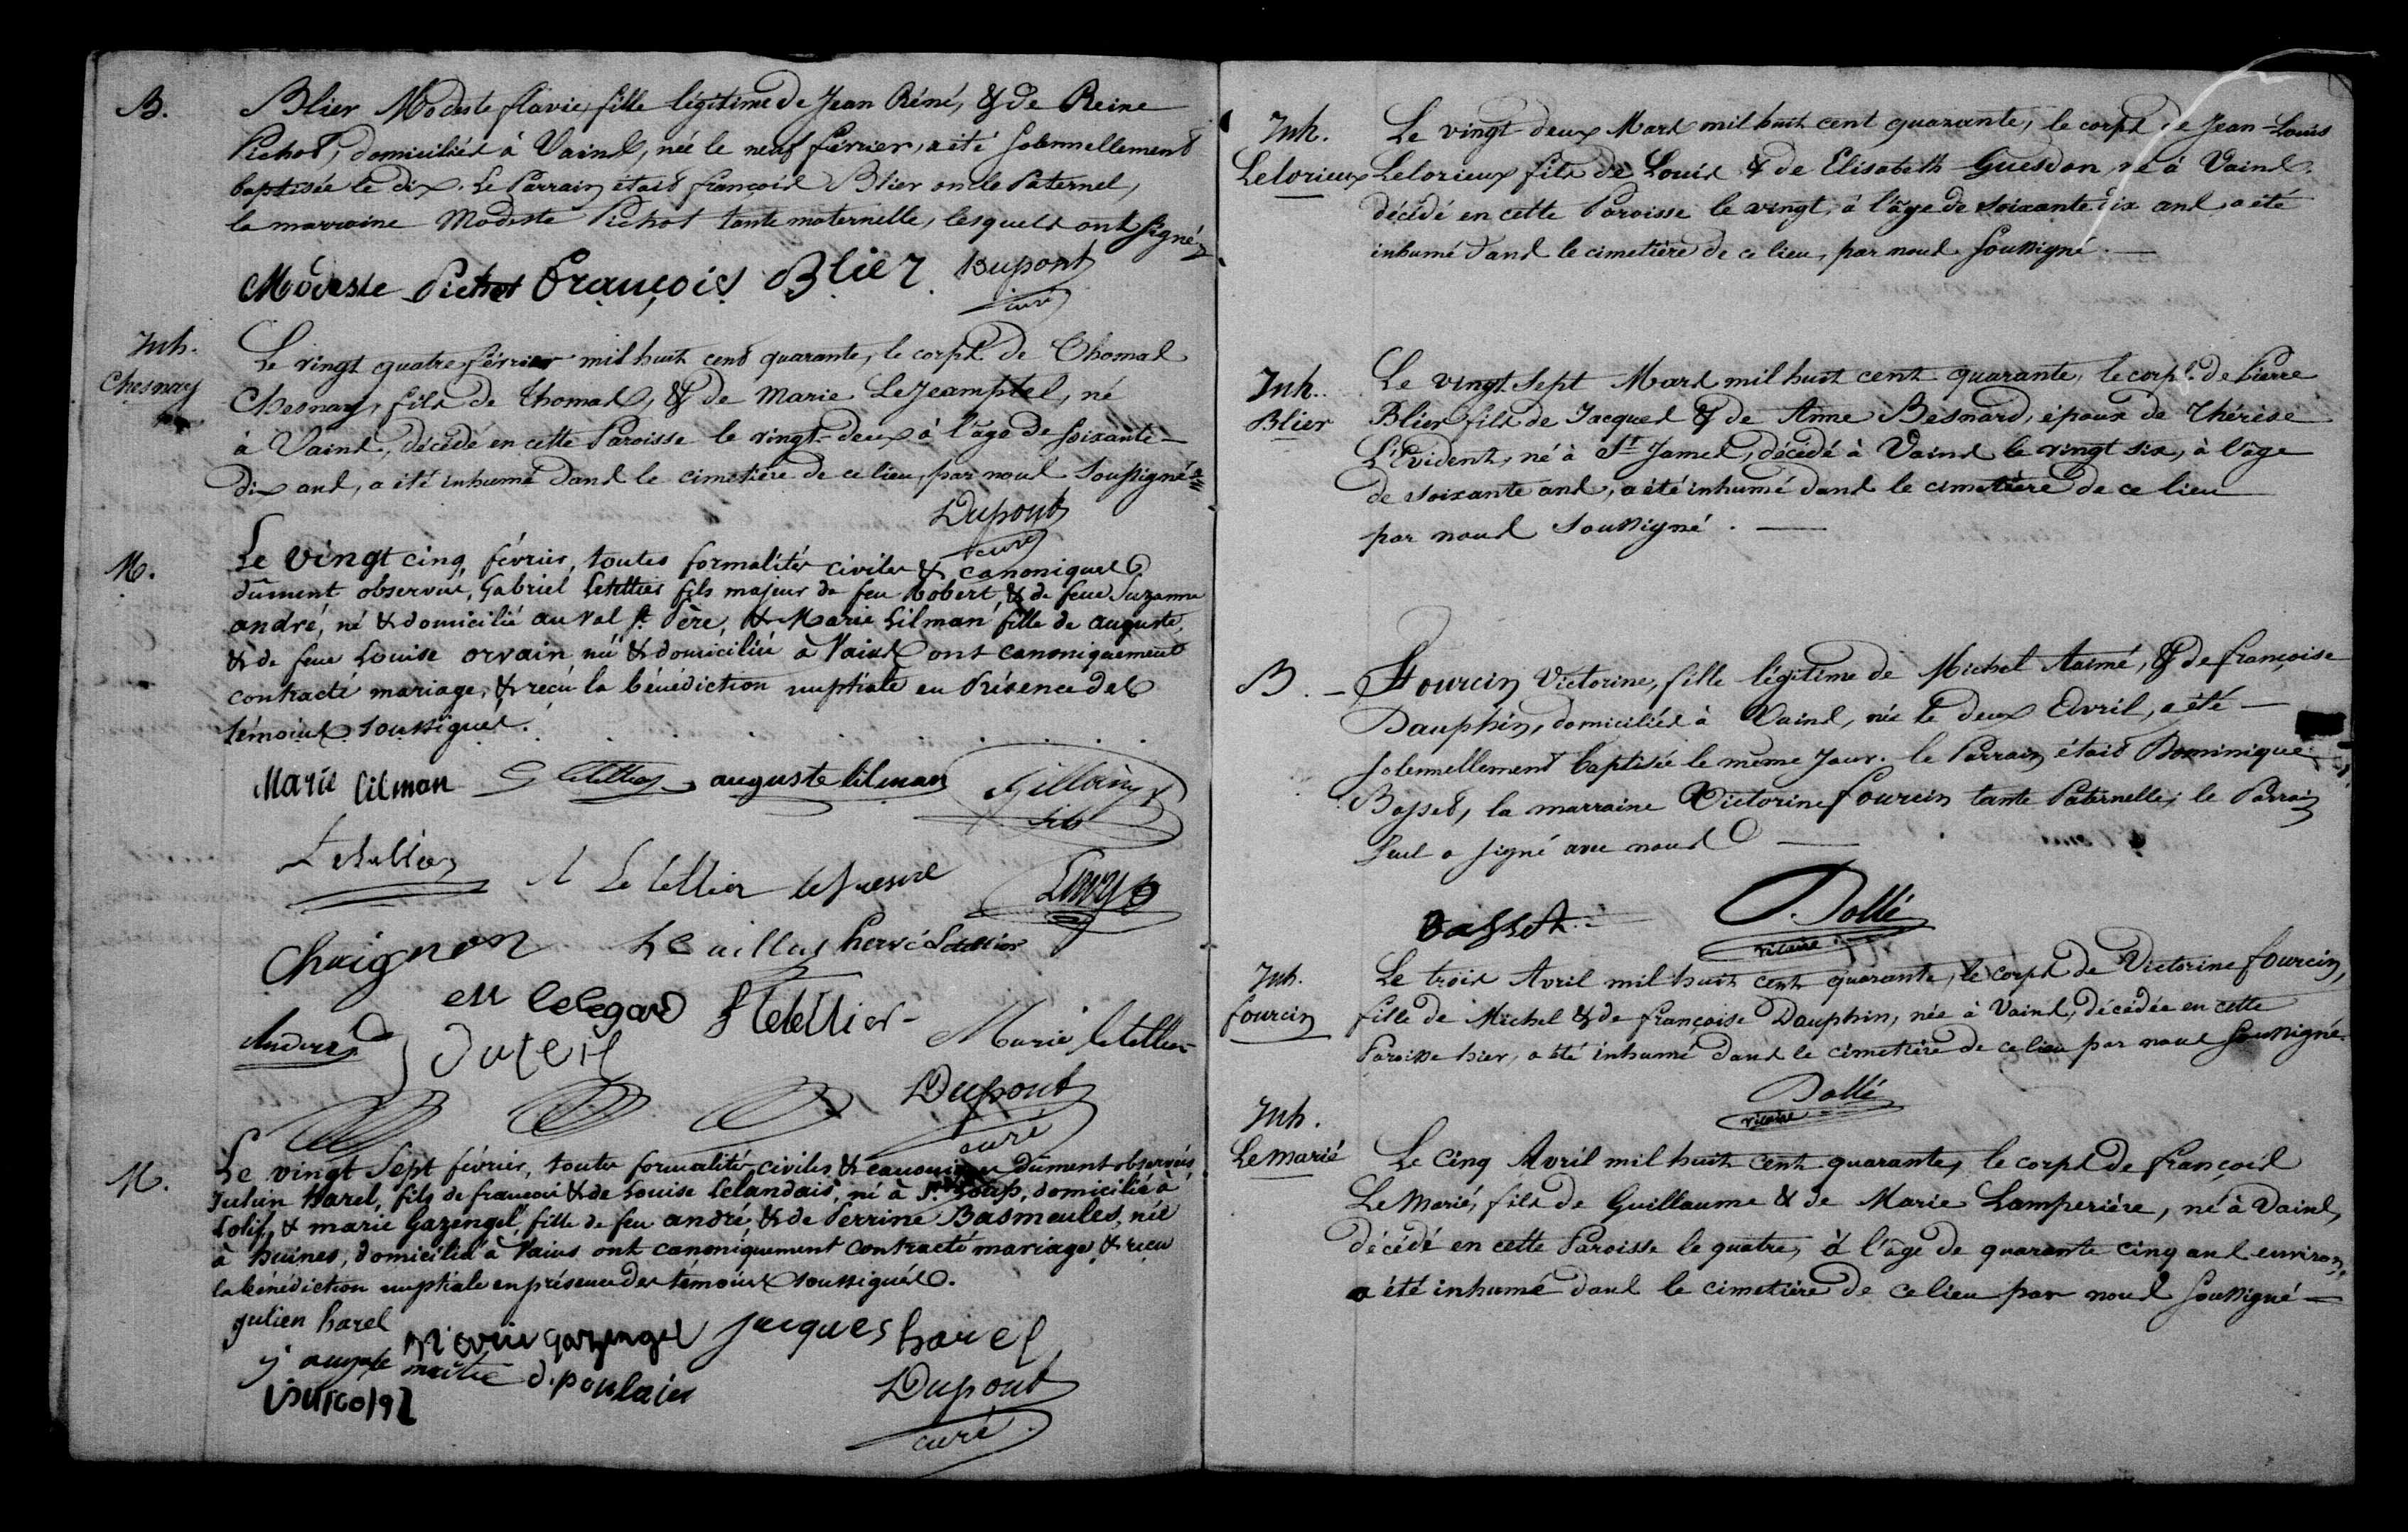 B.
Blier Modeste flavie, fille légitime de Jean Réné, & de Reine
Pichot, domiciliés à Vains, née le neuf février, a été solennellement
baptisée le dix. Le Parrain était françois Blier oncle Paternel,
la marraine Modeste Pichot tante maternelle, lesquels ont signé
Modeste Pichot François Blier Dupont
curé
Inh.
Chesnay
Le vingt quatre février mil huit cent quarante, le corps de Thomas
Chesnay, fils de Thomas, & de Marie LeJeamptel, né
à Vains, décédé en cette Paroisse le vingt-deux à l'âge de soixante-
dix ans, a été inhumé dans le cimetière de ce lieu, par nous soussigné
Dupont
curé
M.
Le vingt cinq février, toutes formalités civiles & canoniques
dûment observées, Gabriel Letellier fils majeur de feu Robert & de feue Suzanne
andré, né & domicilié au Val St. Père, & Marie Lilman fille de auguste,
& de feue Louise orvain née & domiciliée à Vains ont canoniquement
contracté mariage, & reçu la bénédiction nuptiale en Présence des
témoins soussignés.
Marie lilman G letellier auguste lilman
fils
Letellier Letellier lefresne
Chaignon hervé Letellier
lelegard f letellier
Marie letellier
Dupont
curé
M.
Le vingt sept février, toutes formalités civiles & canoniques dûment observées,
Julien Harel, fils de françois & de Louise Lelandais, né à St. Loup, domicilié à
Lolif, & marie Gazengel, fille de feu andré, & de Perrine Basmeules, née
à huines, domiciliée à Vains ont canoniquement contracté mariage & reçu
la bénédiction nuptiale en présence des témoins soussignés.
julien harel
Marie gazengel jacques harel
maître d. poulain
Dupont
curé
Inh.
Lelorieux
Le vingt-deux Mars mil huit cent quarante, le corps de Jean-Louis
Lelorieux fils de Louis & de Elisabeth Guesdon, né à Vains,
décédé en cette Paroisse le vingt, à l'âge de soixante dix ans, a été
inhumé dans le cimetière de ce lieu, par nous soussigné.
Inh.
Blier
Le vingt sept Mars mil huit cent quarante, le corps de Pierre
Blier fils de Jacques & de Anne Besnard, époux de Thérèse
L'Evident, né à St James, décédé à Vains le vingt six, à l'âge
de soixante ans, a été inhumé dans le cimetière de ce lieu
par nous soussigné.
B.
Fourcin Victorine, fille légitime de Michel Aaimé, & de françoise
Dauphin, domiciliés à Vains, née le deux Avril, a été
solennellement baptisée le même jour. le Parrain était Dominique
Basset, la marraine Victorine fourcin tante Paternelle, le Parrain
seul a signé avec nous
Basset Dollé
vicaire
Inh.
fourcin
Le trois Avril mil huit cent quarante, le corps de Victorine fourcin,
fille de Michel & de françoise Dauphin, née à Vains, décédée en cette
Paroisse hier, a été inhumé dans le cimetière de ce lieu par nous soussigné.
Dollé
vicaire
Inh.
Le Marié
Le cinq Avril mil huit cent quarante, le corps de françois
Le Marié, fils de Guillaume & de Marie Lamperière, né à Vains,
décédé en cette Paroisse le quatre, à l'âge de quarante cinq ans environ,
a été inhumé dans le cimetière de ce lieu par nous soussigné